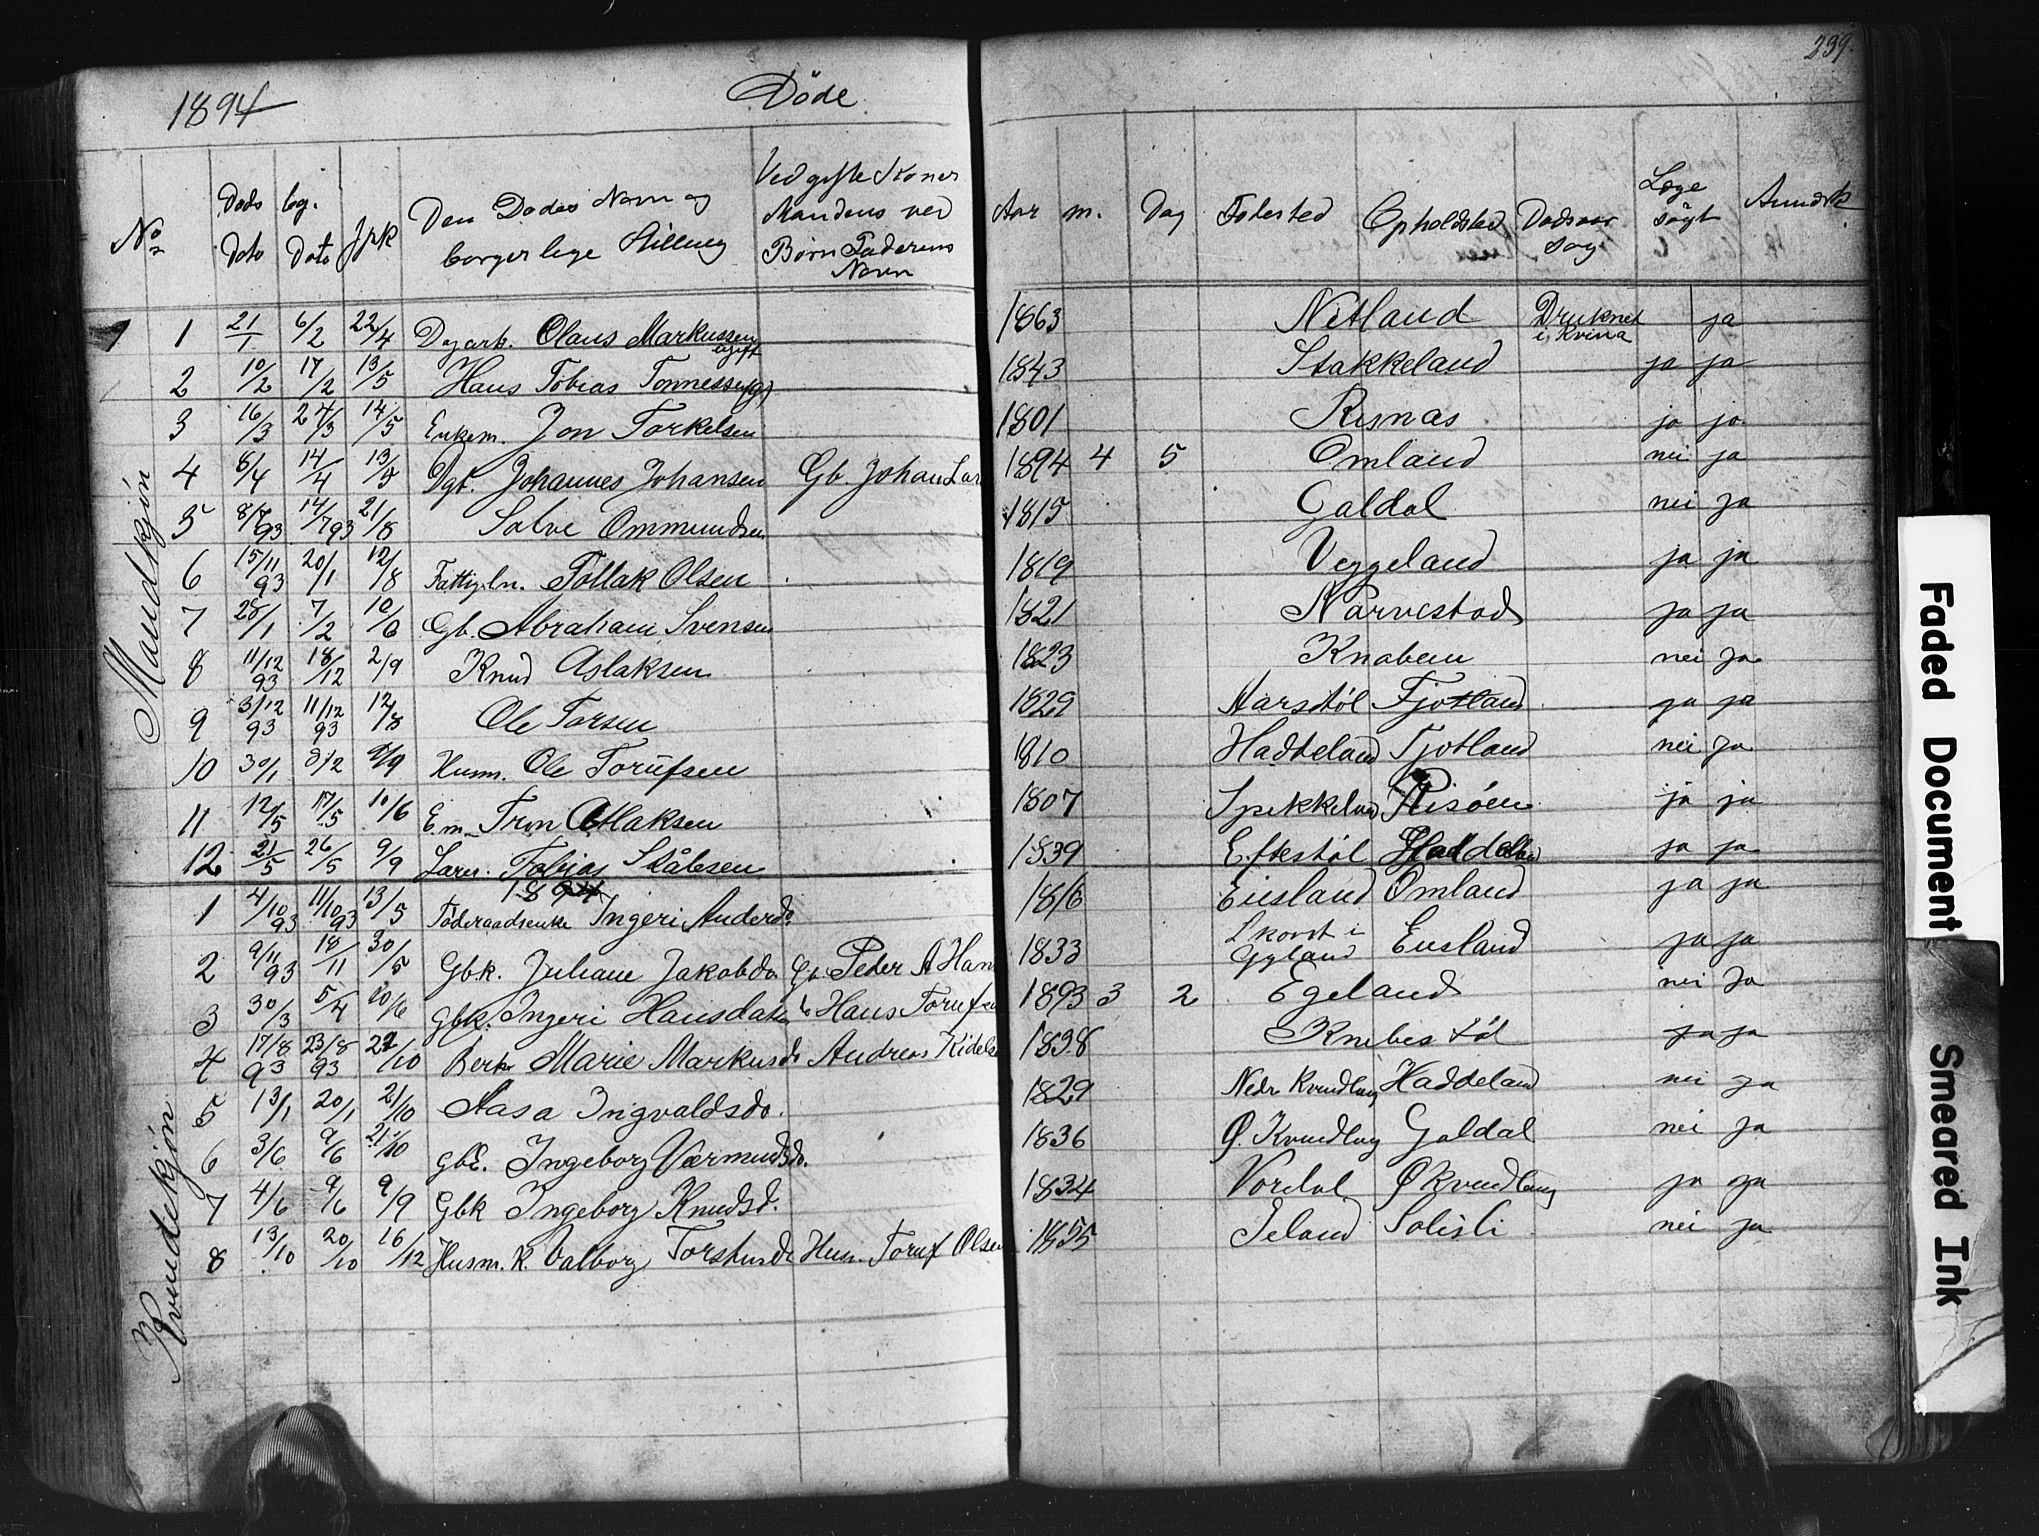 1894 Döde 239.
No Döds Dato beg. Dato Jpk Den Dødes Navn og borgerlige Stilling Ved gifte Koner Mandens ved Børn Faderens Navn Aar m. Dag Fødested Opholdsted Dødsaarsag Læge søgt Anmelt
Mandkjön
1 21/1 6/2 22/4 Dagarb. Olaus Markussen ugift 1863 Netland Druknet i Kvina ja
2 10/2 17/2 13/5 Hans Tobias Tønnessen (g) 1843 Stakkeland ja ja
3 16/3 24/3 14/5 Enkem. Jon Torkelsen 1801 Risnæs ja ja
4 8/4 14/4 13/5 Dgb. Johannes Johansen Gb. Johan Lar 1894 4 5 Omland nei ja
5 8/7 93 14/7 93 21/8 Salve Ommundsen 1815 Galdal nei ja
6 15/11 93 20/1 12/8 Fattigln. Tollak Olsen 1819 Veggeland ja ja
7 28/1 7/2 10/6 Gb. Abraham Svensen 1821 Narvestad ja ja
8 11/12 93 18/12 2/9 Knud Aslaksen 1823 Knaben nei ja
9 3/12 93 11/12 93 12/8 Ole Torsen 1829 Harstöl Fjotland ja ja
10 30/1 8/2 9/9 Husm. Ole Torufsen 1810 Haddeland Fjotland nei ja
11 12/5 17/5 10/6 E.m. Tron Atlaksen 1807 Spikkeland Risöen ja ja
12 21/5 26/5 9/9 Lærer. Tobias Stålesen 1839 Eftestöl Haddeland ja ja
1894
Kvindekjön
1 4/10 93 11/10 93 13/5 Föderaadsenke Ingeri Andersd. 1816 Eiesland Omland ja ja
2 9/11 93 18/11 30/5 Gbk. Juliane Jakobsda Gb. Peder A Han 1833 Skovst i Gyland Eiesland ja ja
3 30/3 5/4 10/6 Gbk. Ingeri Hansdatter Hans Torufsen 1893 3 2 Egeland nei ja
4 17/8 93 23/8 93 21/10 Marie Markusd. Andreas Kidels 1838 Knibestöl ja ja
5 13/1 20/1 21/10 Aasa Ingvaldsda. 1829 Nedr Kvindlaug Haddeland nei ja
6 3/6 9/6 21/10 GbE. Ingeborg Værmundsd. 1836 Ø. Kvindlaug Galdal nei ja
7 4/6 9/6 9/9 Gbk Ingeborg Knudsd. 1834 Vordal Ø Kvindlaug ja ja
8 13/10 20/10 16/12 Husm. k. Valborg Torsteinsd. Husm. Toruf Olsen 1855 Jeland Solisli nei ja
Faded Document
Smeared Ink